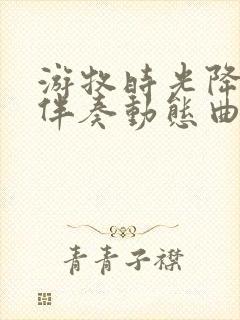 游牧時光降
伴奏動態曲
青青子襟